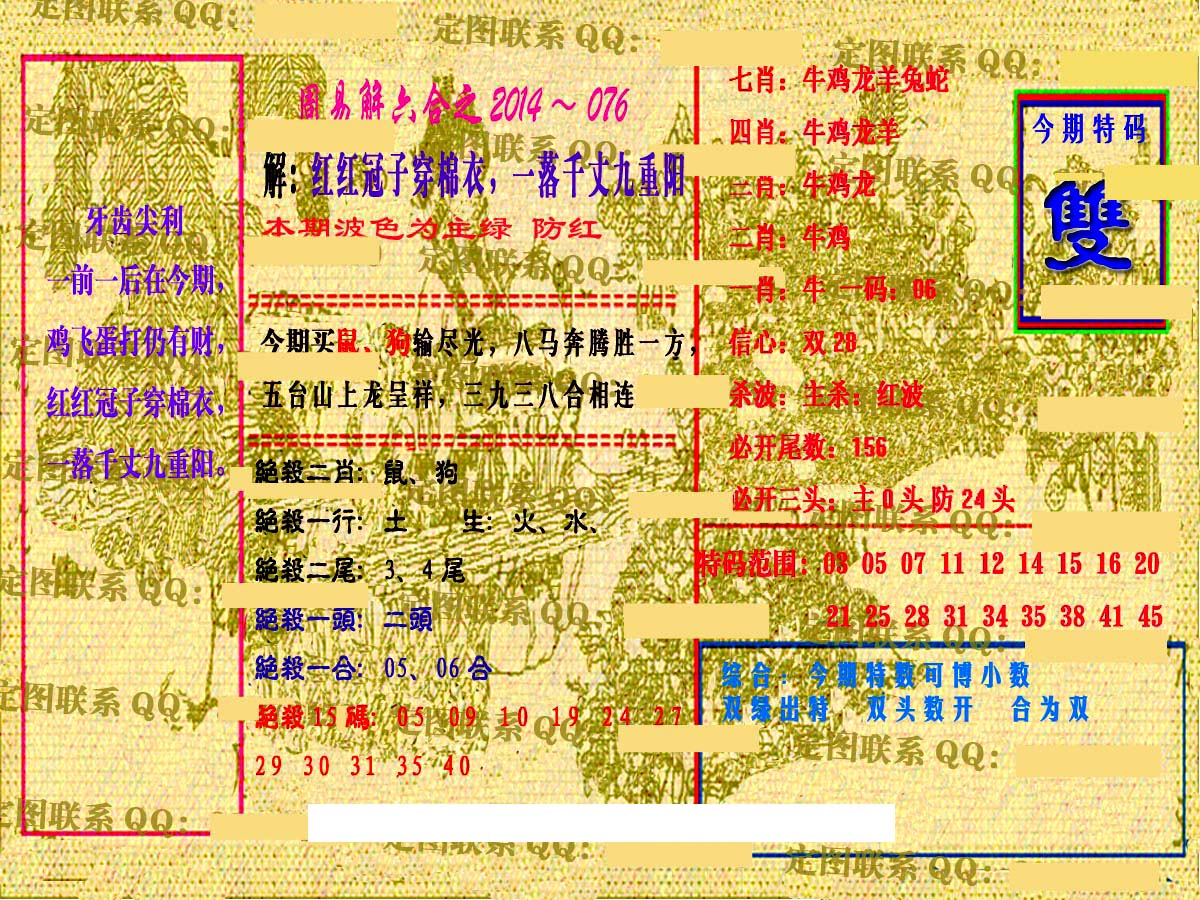 定图联系 QQ：
定图联系 QQ：
定图联系 QQ：
周易解六合之 2014～076
解：红红冠子穿棉衣，一落千丈九重阳
本期波色为主绿 防红
牙齿尖利
一前一后在今期，
鸡飞蛋打仍有财，
红红冠子穿棉衣，
一落千丈九重阳。
今期买鼠、狗输尽光，八马奔腾胜一方，
五台山上龙呈祥，三九三八合相连
絕殺二肖：鼠、狗
絕殺一行：土 生：火、水、
絕殺二尾：3、4 尾
絕殺一頭：二頭
絕殺一合：05、06 合
絕殺 15 碼：05 09 10 19 24 27
29 30 31 35 40
七肖：牛鸡龙羊兔蛇
四肖：牛鸡龙羊
三肖：牛鸡龙
二肖：牛鸡
一肖：牛 一码：06
信心：双 28
杀波：主杀：红波
必开尾数：156
必开三头：主 0 头 防 24 头
今期特码
雙
特码范围：03 05 07 11 12 14 15 16 20
21 25 28 31 34 35 38 41 45
综合：今期特数可博小数
双绿出特 双头数开 合为双
定图联系 QQ：
定图联系 QQ：
定图联系 QQ：
定图联系 QQ：